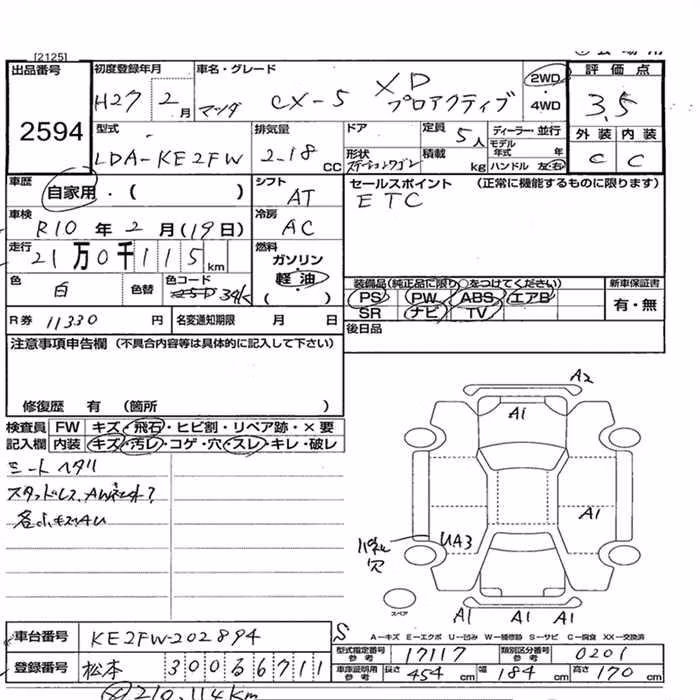 [2125]
出品番号
2594
初度登録年月
H27 2月
車名・グレード
マツダ CX-5 XD プロアクティブ
2WD
・
4WD
評価点
3.5
外装 内装
C C
型式
LDA-KE2FW
排気量
2.18 CC
ドア
形状
ステーションワゴン
定員
5人
積載
kg
ディーラー・並行
モデル年式 年
ハンドル 左・右
車歴
自家用・( )
シフト
AT
セールスポイント (正常に機能するものに限ります)
ETC
車検
R10年2月(19日)
冷房
AC
走行
21万0千115km
燃料
ガソリン
軽油
( )
色
白
色替
色コード
34K
装備品(純正品に限り○をつけてください)
PS PW ABS エアB
SR ナビ TV
新車保証書
有・無
R券 11330 円
名変通知期限 月 日
後日品
注意事項申告欄 (不具合内容等は具体的に記入して下さい)
修復歴 有 (箇所 )
検査員記入欄
FW キズ・飛石・ヒビ割・リペア跡・×要
内装 キズ・汚レ・コゲ・穴・スレ・キレ・破レ
シートヘタリ
スタッドレス、AW
A2
A1
A1
UA3
穴
スペア
A1 A1 A1
S
A-キズ E-エクボ U-凹み W-補修跡 S-サビ C-腐食 XX-交換済
車台番号
KE2FW-202894
型式指定番号 参考
17117
類別区分番号 参考
0201
登録番号
松本 300 る 6711
車庫証明用 参考
長さ 454 cm 幅 184 cm 高さ 170 cm
210,114km